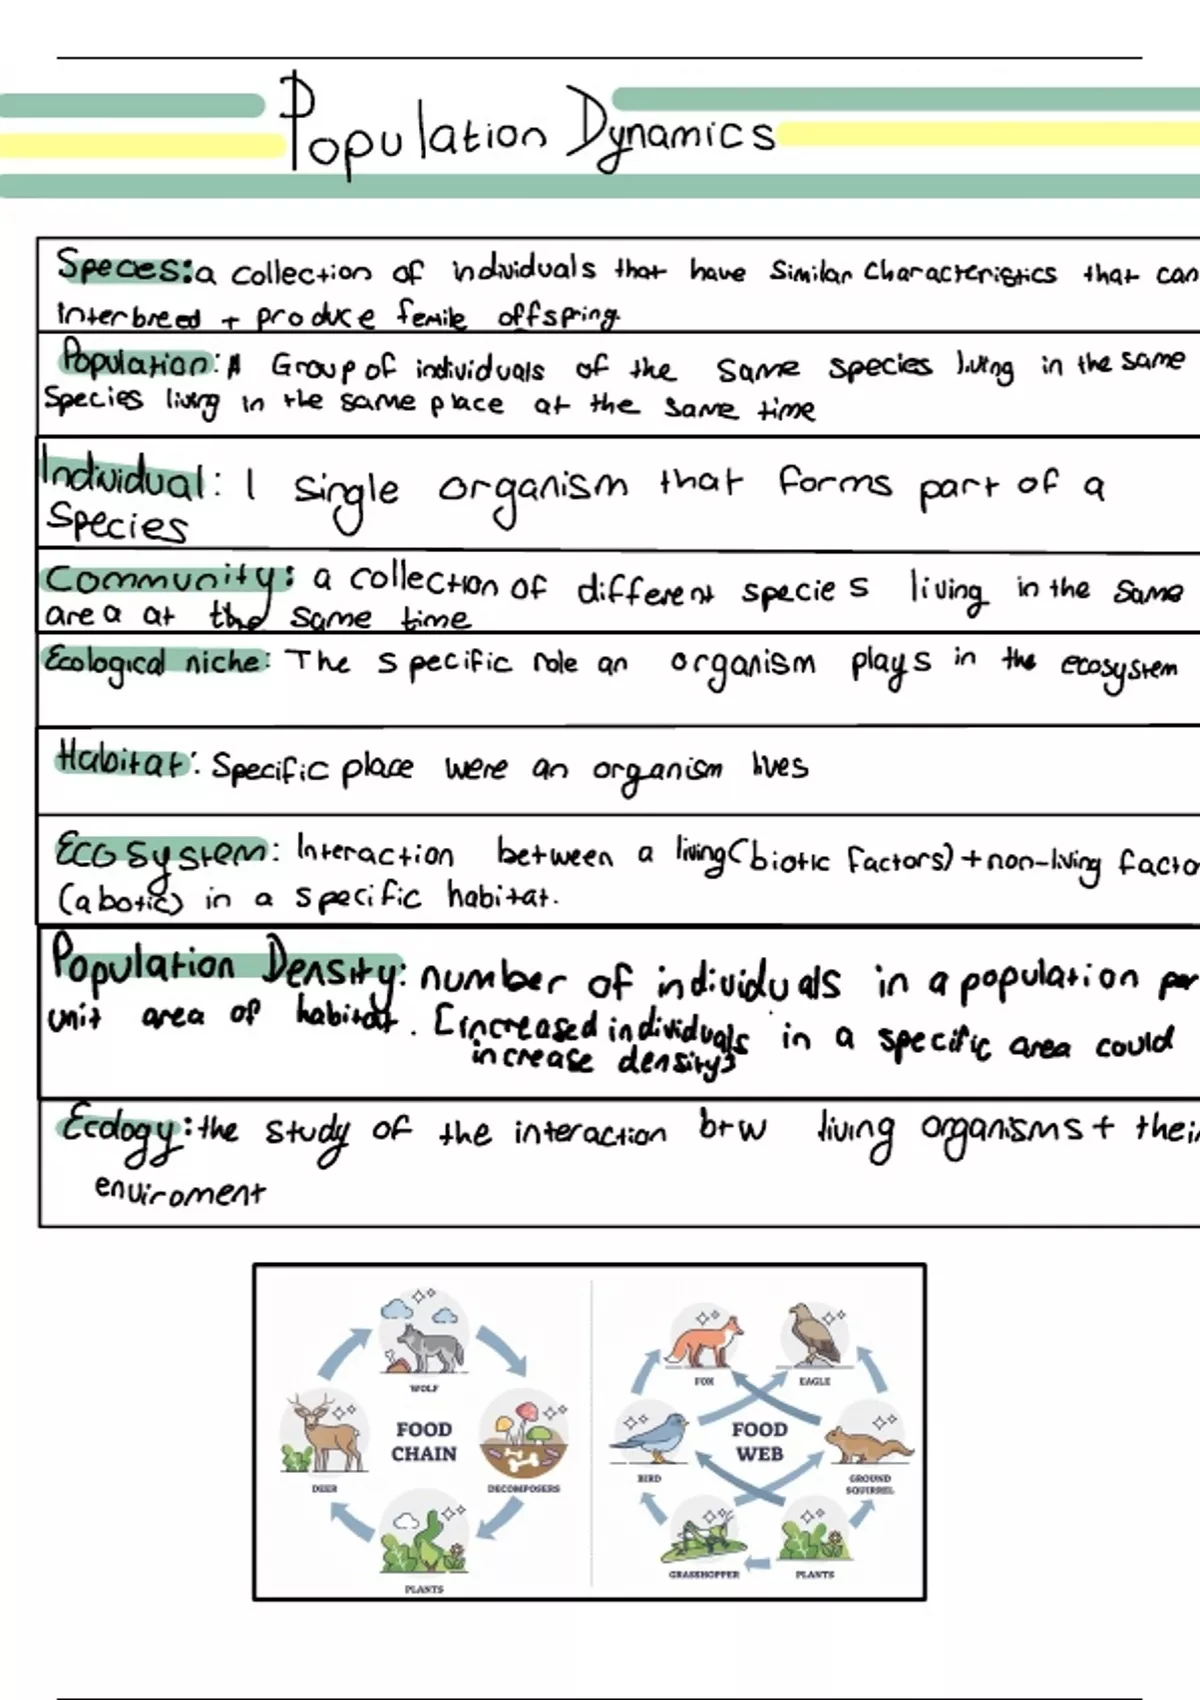 Population Dynamics
Speces: a collection of individuals that have similar characteristics that can
interbreed + produce fertile offspring.
Population: A Group of individuals of the same species living in the same
species living in the same place at the same time
Individual: 1 single organism that forms part of a
species
Community: a collection of different species living in the same
area at the same time
Ecological niche: The specific role an organism plays in the ecosystem
Habitat: Specific place were an organism lives
Ecosystem: Interaction between a living (biotic factors) + non-living facto
(abotic) in a specific habitat.
Population Density: number of individuals in a population per
unit area of habitat. [increased individuals in a specific area could
increase density}
Ecology: the study of the interaction btw living organisms + their
enviroment
WOLF
FOOD
CHAIN
DEER
DECOMPOSERS
PLANTS
FOX
EAGLE
FOOD
WEB
BIRD
GROUND
SQUIRREL
GRASSHOPPER
PLANTS